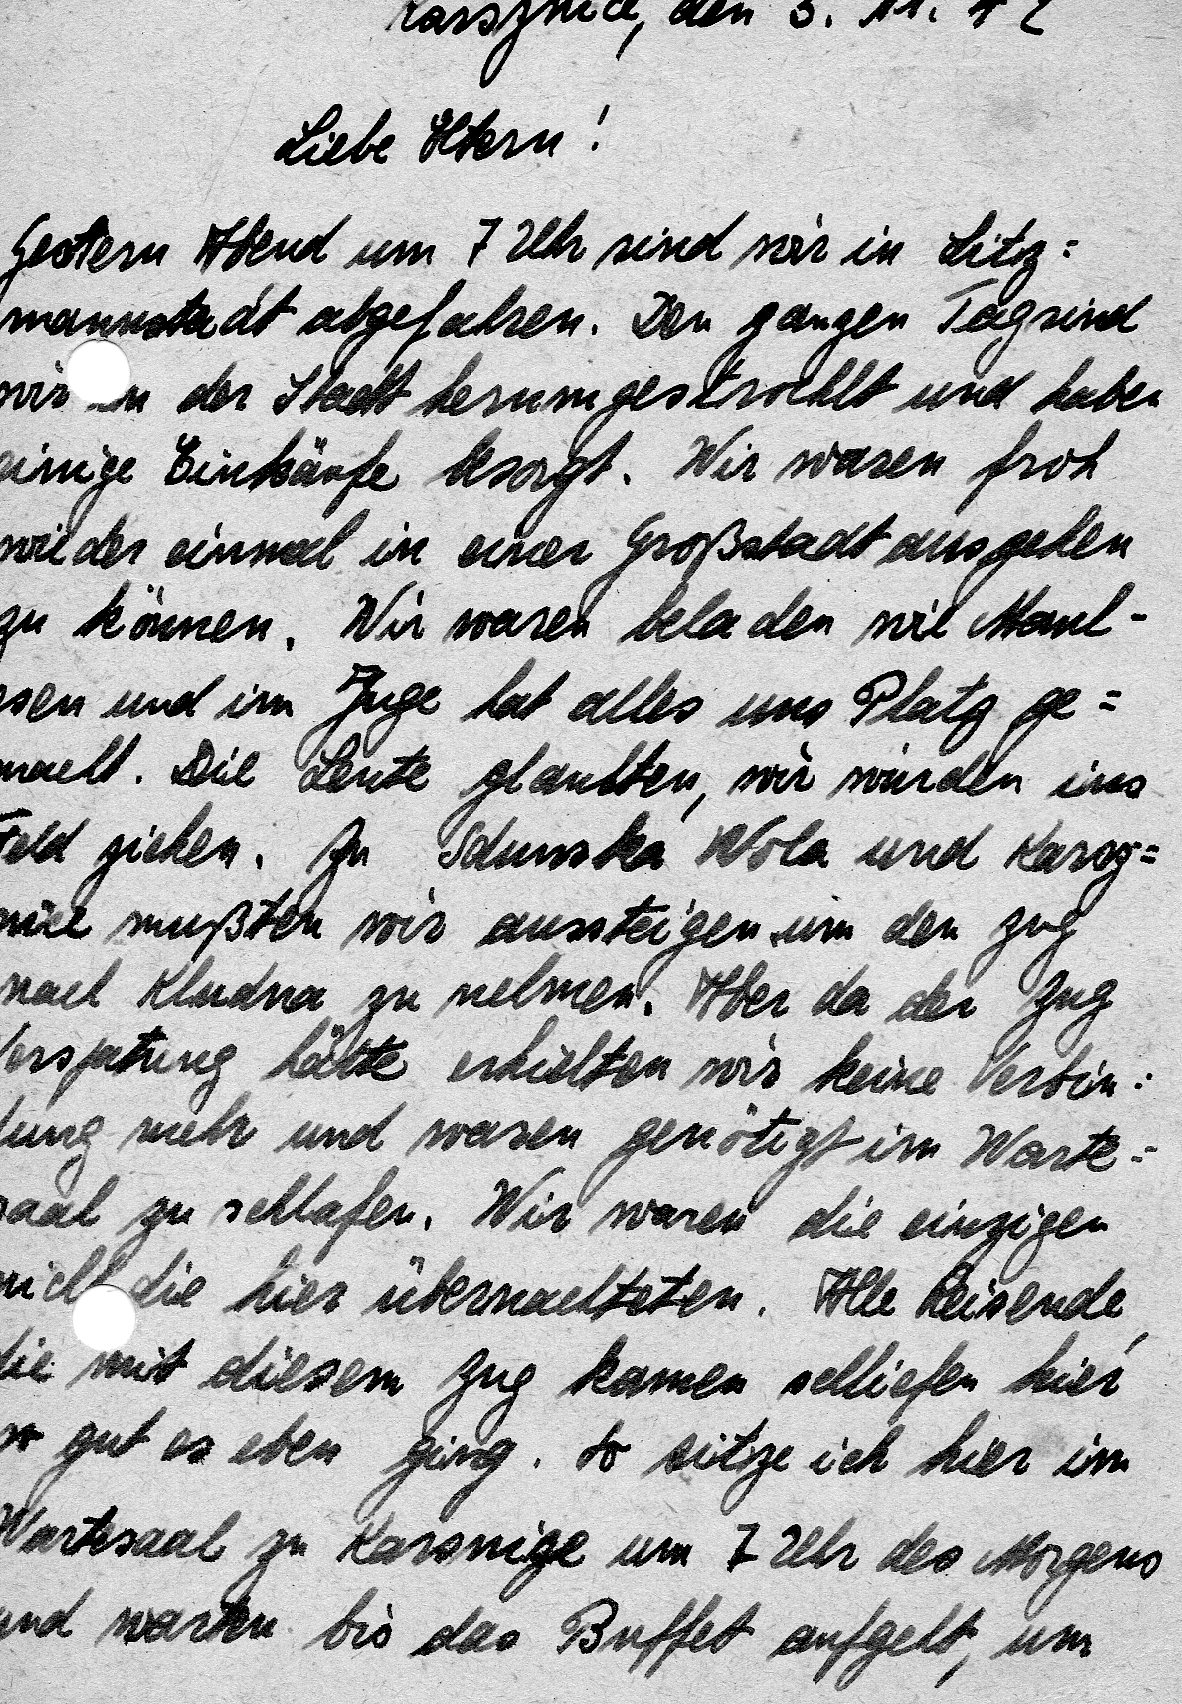 Karsznice, den 3. 11. 42
Liebe Eltern!
Gestern Abend um 7 Uhr sind wir in Litz=
mannstadt abgefahren. Den ganzen Tag sind
wir in der Stadt herumgestrochllt und haben
einige Einkäufe besorgt. Wir waren froh
wieder einmal in einer Großstadt ausgehen
zu können. Wir waren beladen wie Maul-
esen und im Zuge hat alles uns Platz ge=
macht. Die Leute glaubten, wir würden ins
Feld ziehen. In Sdunska Wola und Karsz=
nice mußten wir aussteigen um den Zug
nach Kludna zu nehmen. Aber da der Zug
Verspätung hätte erhielten wir keine Verbin=
dung mehr und waren genötigt im Warte=
saal zu schlafen. Wir waren die einzigen
nicht die hier übernachteten. Alle Reisende,
die mit diesem Zug kamen schliefen hier
so gut es eben ging. So sitze ich hier im
Wartesaal zu Karsnize um 7 Uhr des Morgens
und warten bis das Buffet aufgeht, um